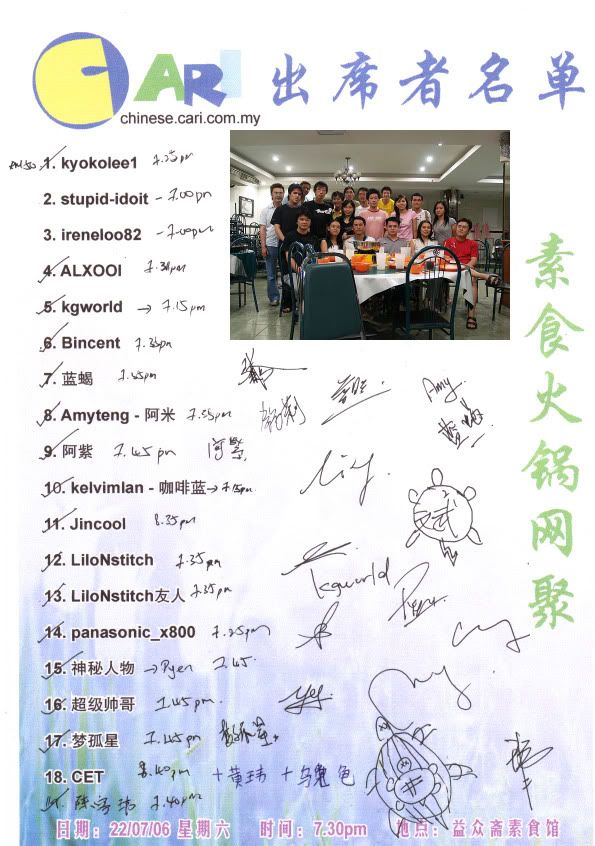 CARI 出席者名单
chinese.cari.com.my
1. kyokolee1 7.25pm
2. stupid-idoit - 7.00pm
3. ireneloo82 - 7.00pm
4. ALXOOI 7.30pm
5. kgworld → 7.15pm
6. Bincent 7.35pm
7. 蓝蝎 7.45pm
8. Amyteng - 阿米 7.35pm
9. 阿紫 7.45pm 阿紫
10. kelvimlan - 咖啡蓝 → 7.15pm
11. Jincool 8.35pm
12. LiloNstitch 7.35pm
13. LiloNstitch友人 7.35pm
14. panasonic_x800 7.25pm
15. 神秘人物 → Ryen 7.45
16. 超级帅哥 7.45pm
17. 梦孤星 7.45pm 梦孤星
18. CET 8.40pm + 黄玮 + 乌龟色
7.40pm
Amy
蓝蝎
kgworld
素食火锅网聚
日期：22/07/06 星期六 时间：7.30pm 地点：益众斋素食馆